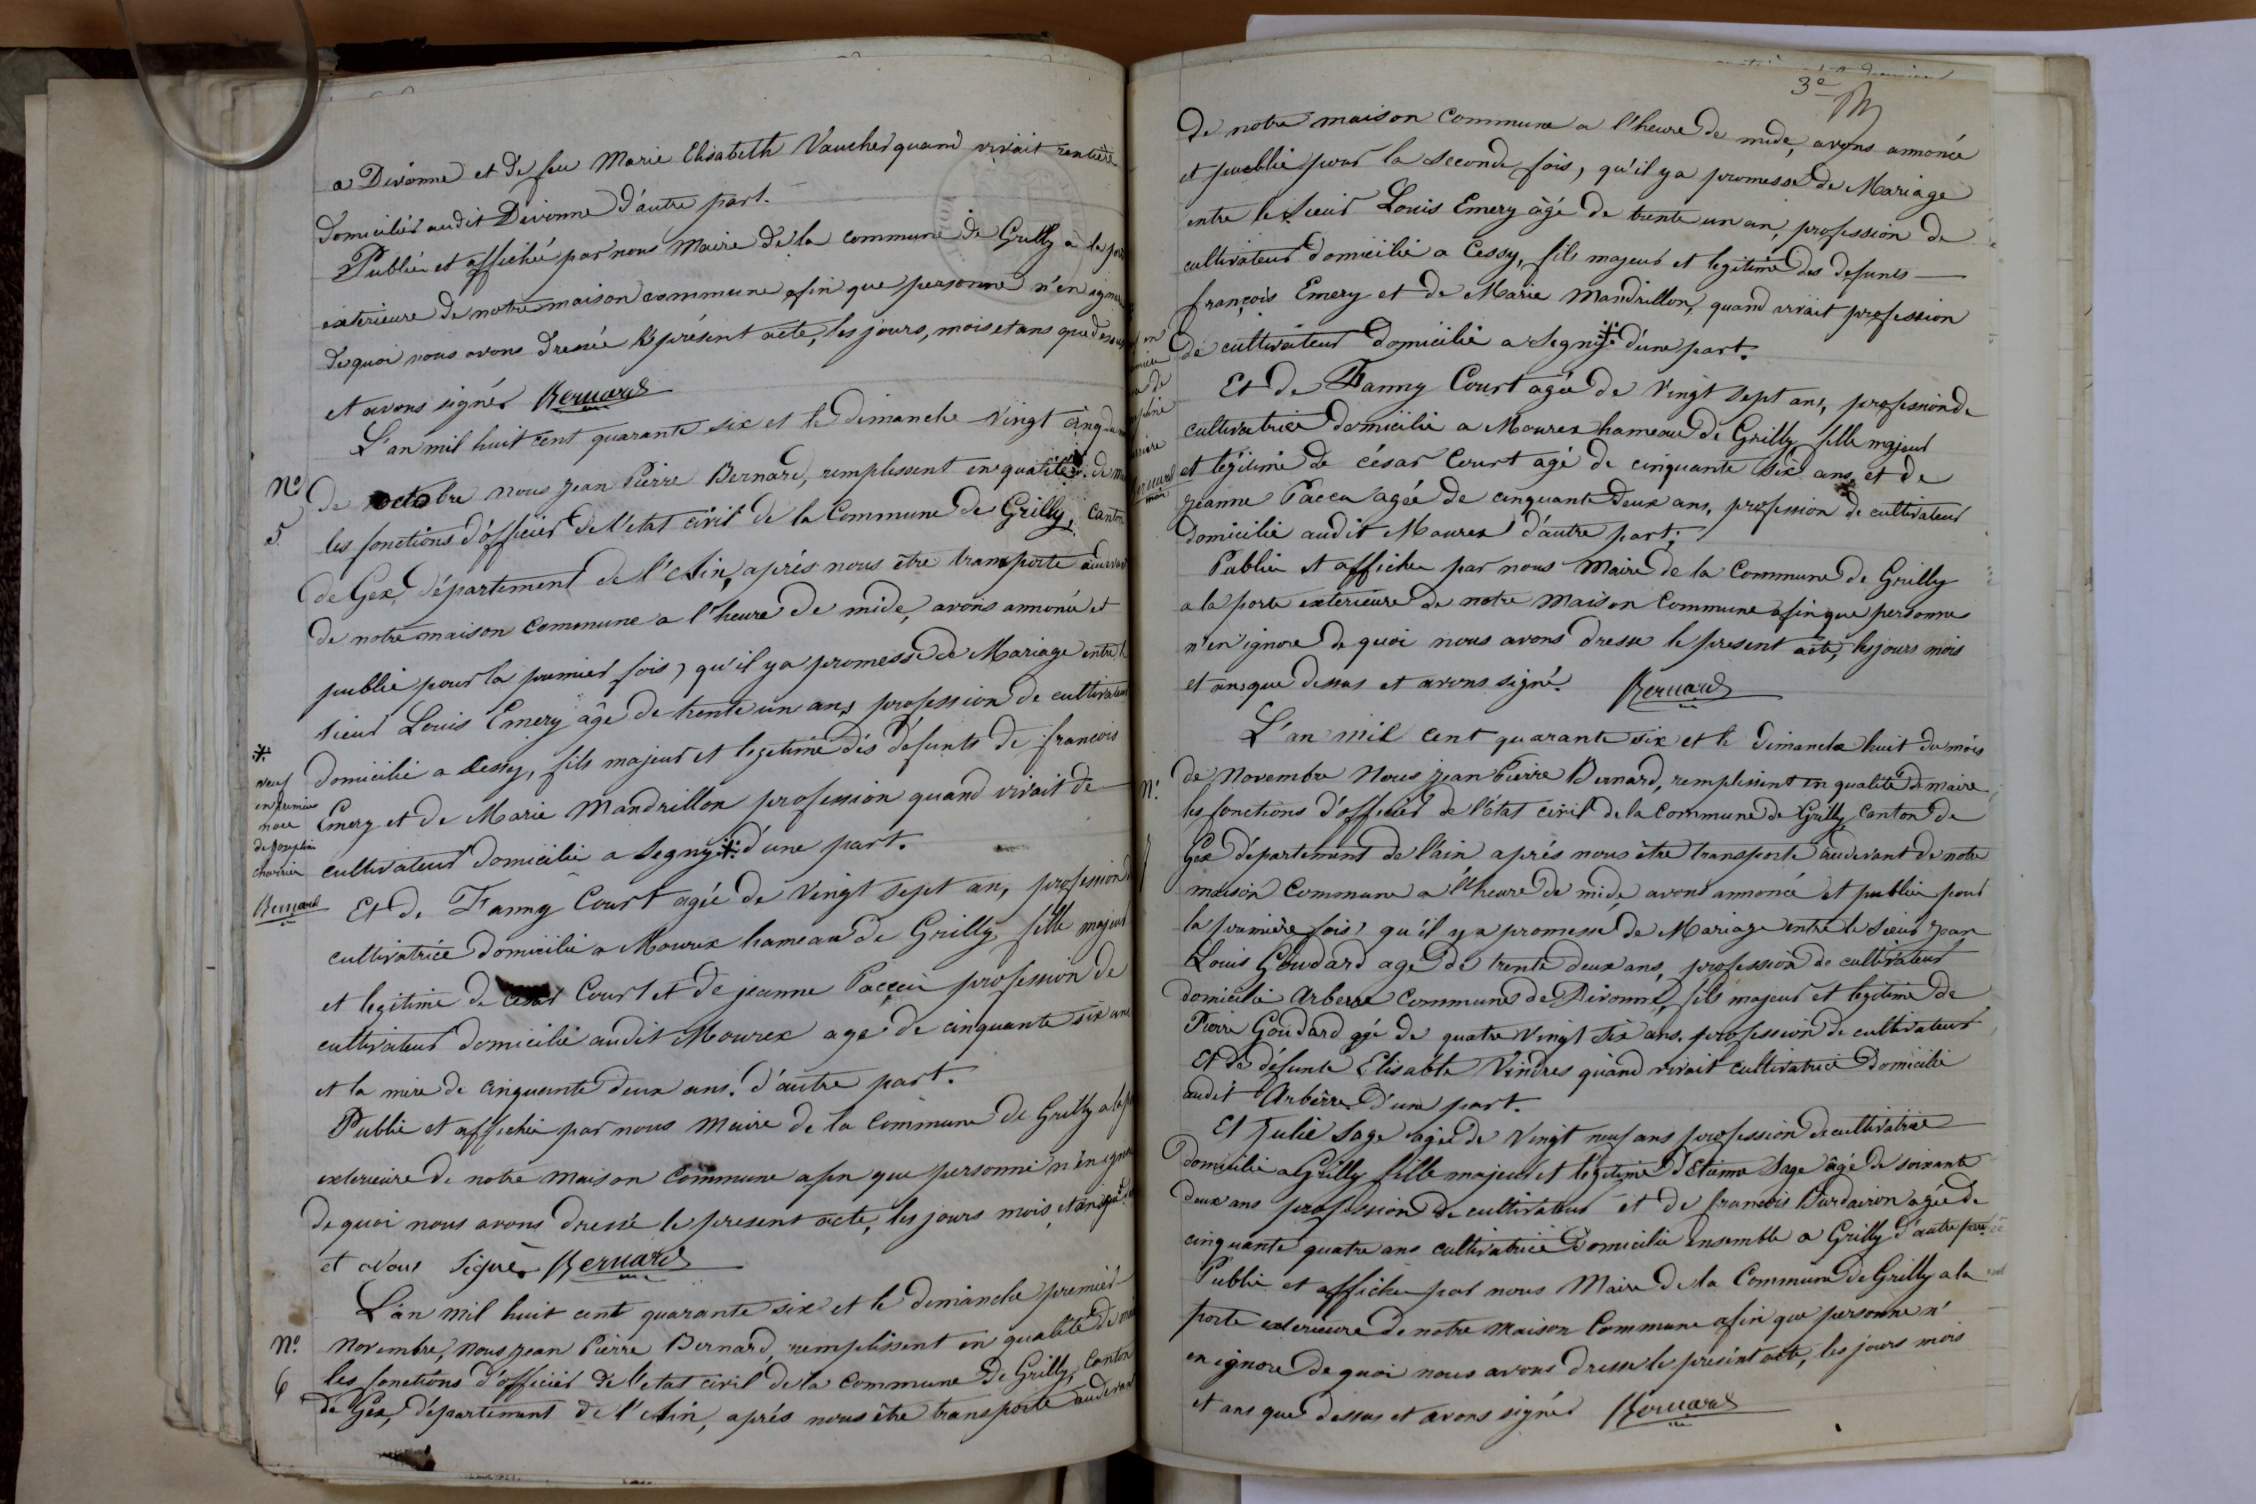 a Divonne et de feu Marie Elisabeth Vaucher quand vivait rentière
domiciliés audit Divonne d'autre part.
Publié et affiché par nous Maire de la commune de Grilly a la
exterieure de notre maison commune afin que personne n'en
de quoi nous avons dressé le présent acte, les jours, mois et ans que
et avons signés Bernard
L'an mil huit cent quarante six et le dimanche vingt cinq
No de octobre nous jean Pierre Bernard, remplissent en qualité de
5 les fonctions d'officier de l'etat civil de la Commune de Grilly, Canton
de Gex, département de l'Ain, après nous être transporte
de notre maison commune a l'heure de mide, avons annoncé et
publié pour la premier fois, qu'il y a promesse de Mariage entre
sieur Louis Emery âgé de trente un ans, profession de cultivateur
domicilié a Cessy, fils majeur et legetime des défunts de françois
Emery et de Marie Mandrillon profession quand vivait de
cultivateur domicilié a Segny * d'une part.
*
veuf
en premiere
noce
de Josephine
charrier
Bernard
Et de Fanny Court agée de vingt sept an, profession
cultivatrice domicilié a Mourex hameau de Grilly, fille majeur
et legitime de Court et de jeanne profession de
cultivateur domicilié audit Mourex age de cinquante six ans
et la mère de cinquante deux ans. d'autre part.
Publié et affiché par nous Maire de la Commune de Grilly a la
exterieure de notre Maison Commune afin que personne n'en
de quoi nous avons dressé le present acte, les jours mois et ans
et avons Signés Bernard
L'an mil huit cent quarante six et le dimanche premier
No. novembre, nous jean Pierre Bernard, remplissent en qualité de
6 les fonctions d'officier de l'etat civil de la commune de Grilly, Canton
de Gex, département de l'Ain, après nous être transporte
3e
de notre maison commune a l'heure de mide, avons annoncée
et publié pour la seconde fois, qu'il y a promesse de Mariage
entre le Sieur Louis Emery âgé de trente un an, profession de
cultivateur domicilié a Cessy, fils majeur et legitime des defunts
françois Emery et de Marie Mandrillon, quand vivait profession
de cultivateur domicilié a Segny * d'une part.
Et de Fanny Court agée de vingt sept ans, profession de
cultivatrice domicilié a Mourex hameau de Grilly, fille majeur
et légitime de césar Court agé de cinquante six ans, et de
jeanne agée de cinquante deux ans, profession de cultivateur
domicilié audit Mourex d'autre part;
Publié et affichée par nous Maire de la Commune de Grilly
a la porte exterieure de notre Maison Commune afin que personne
n'en ignore de quoi nous avons dresse le present acte, les jours mois
et ans que dessus et avons signé. Bernard
L'an mil cent quarante six et le dimanche huit du mois
No. de Novembre Nous jean Pierre Bernard, remplissent en qualité de maire
les fonctions d'officier de l'état civil de la commune de Grilly Canton de
Gex département de l'ain après nous être transporte audevant de notre
maison Commune a l'heure de mide avons annoncé et publié pour
la première fois, qu'il y a promesse de Mariage entre le sieur jean
Louis Goudard age de trente deux ans, profession de cultivateur
domicilié Arberre Commune de Divonne, fils majeur et legitime de
Pierre Goudard agé de quatre vingt six ans, profession de cultivateur
Et de défunte Elisabte Vindres quand vivait cultivatrice Domicilié
audit Arbèrre d'une part.
Et Julie Sage agée de vingt neuf ans profession de cultivatrice
domicilié a Grilly fille majeur et legetime d'Etienne Sage âgé de soixante
deux ans profession de cultivateur et de francois agée de
cinquante quatre ans cultivatrice Domicilié ensemble a Grilly d'autre part
Publié et affichée par nous Maire de la Commune de Grilly a la
porte exterieure de notre Maison Commune afin que personne n'
en ignore de quoi nous avons dresse le present acte, les jours mois
et ans que dessus et avons signés Bernard